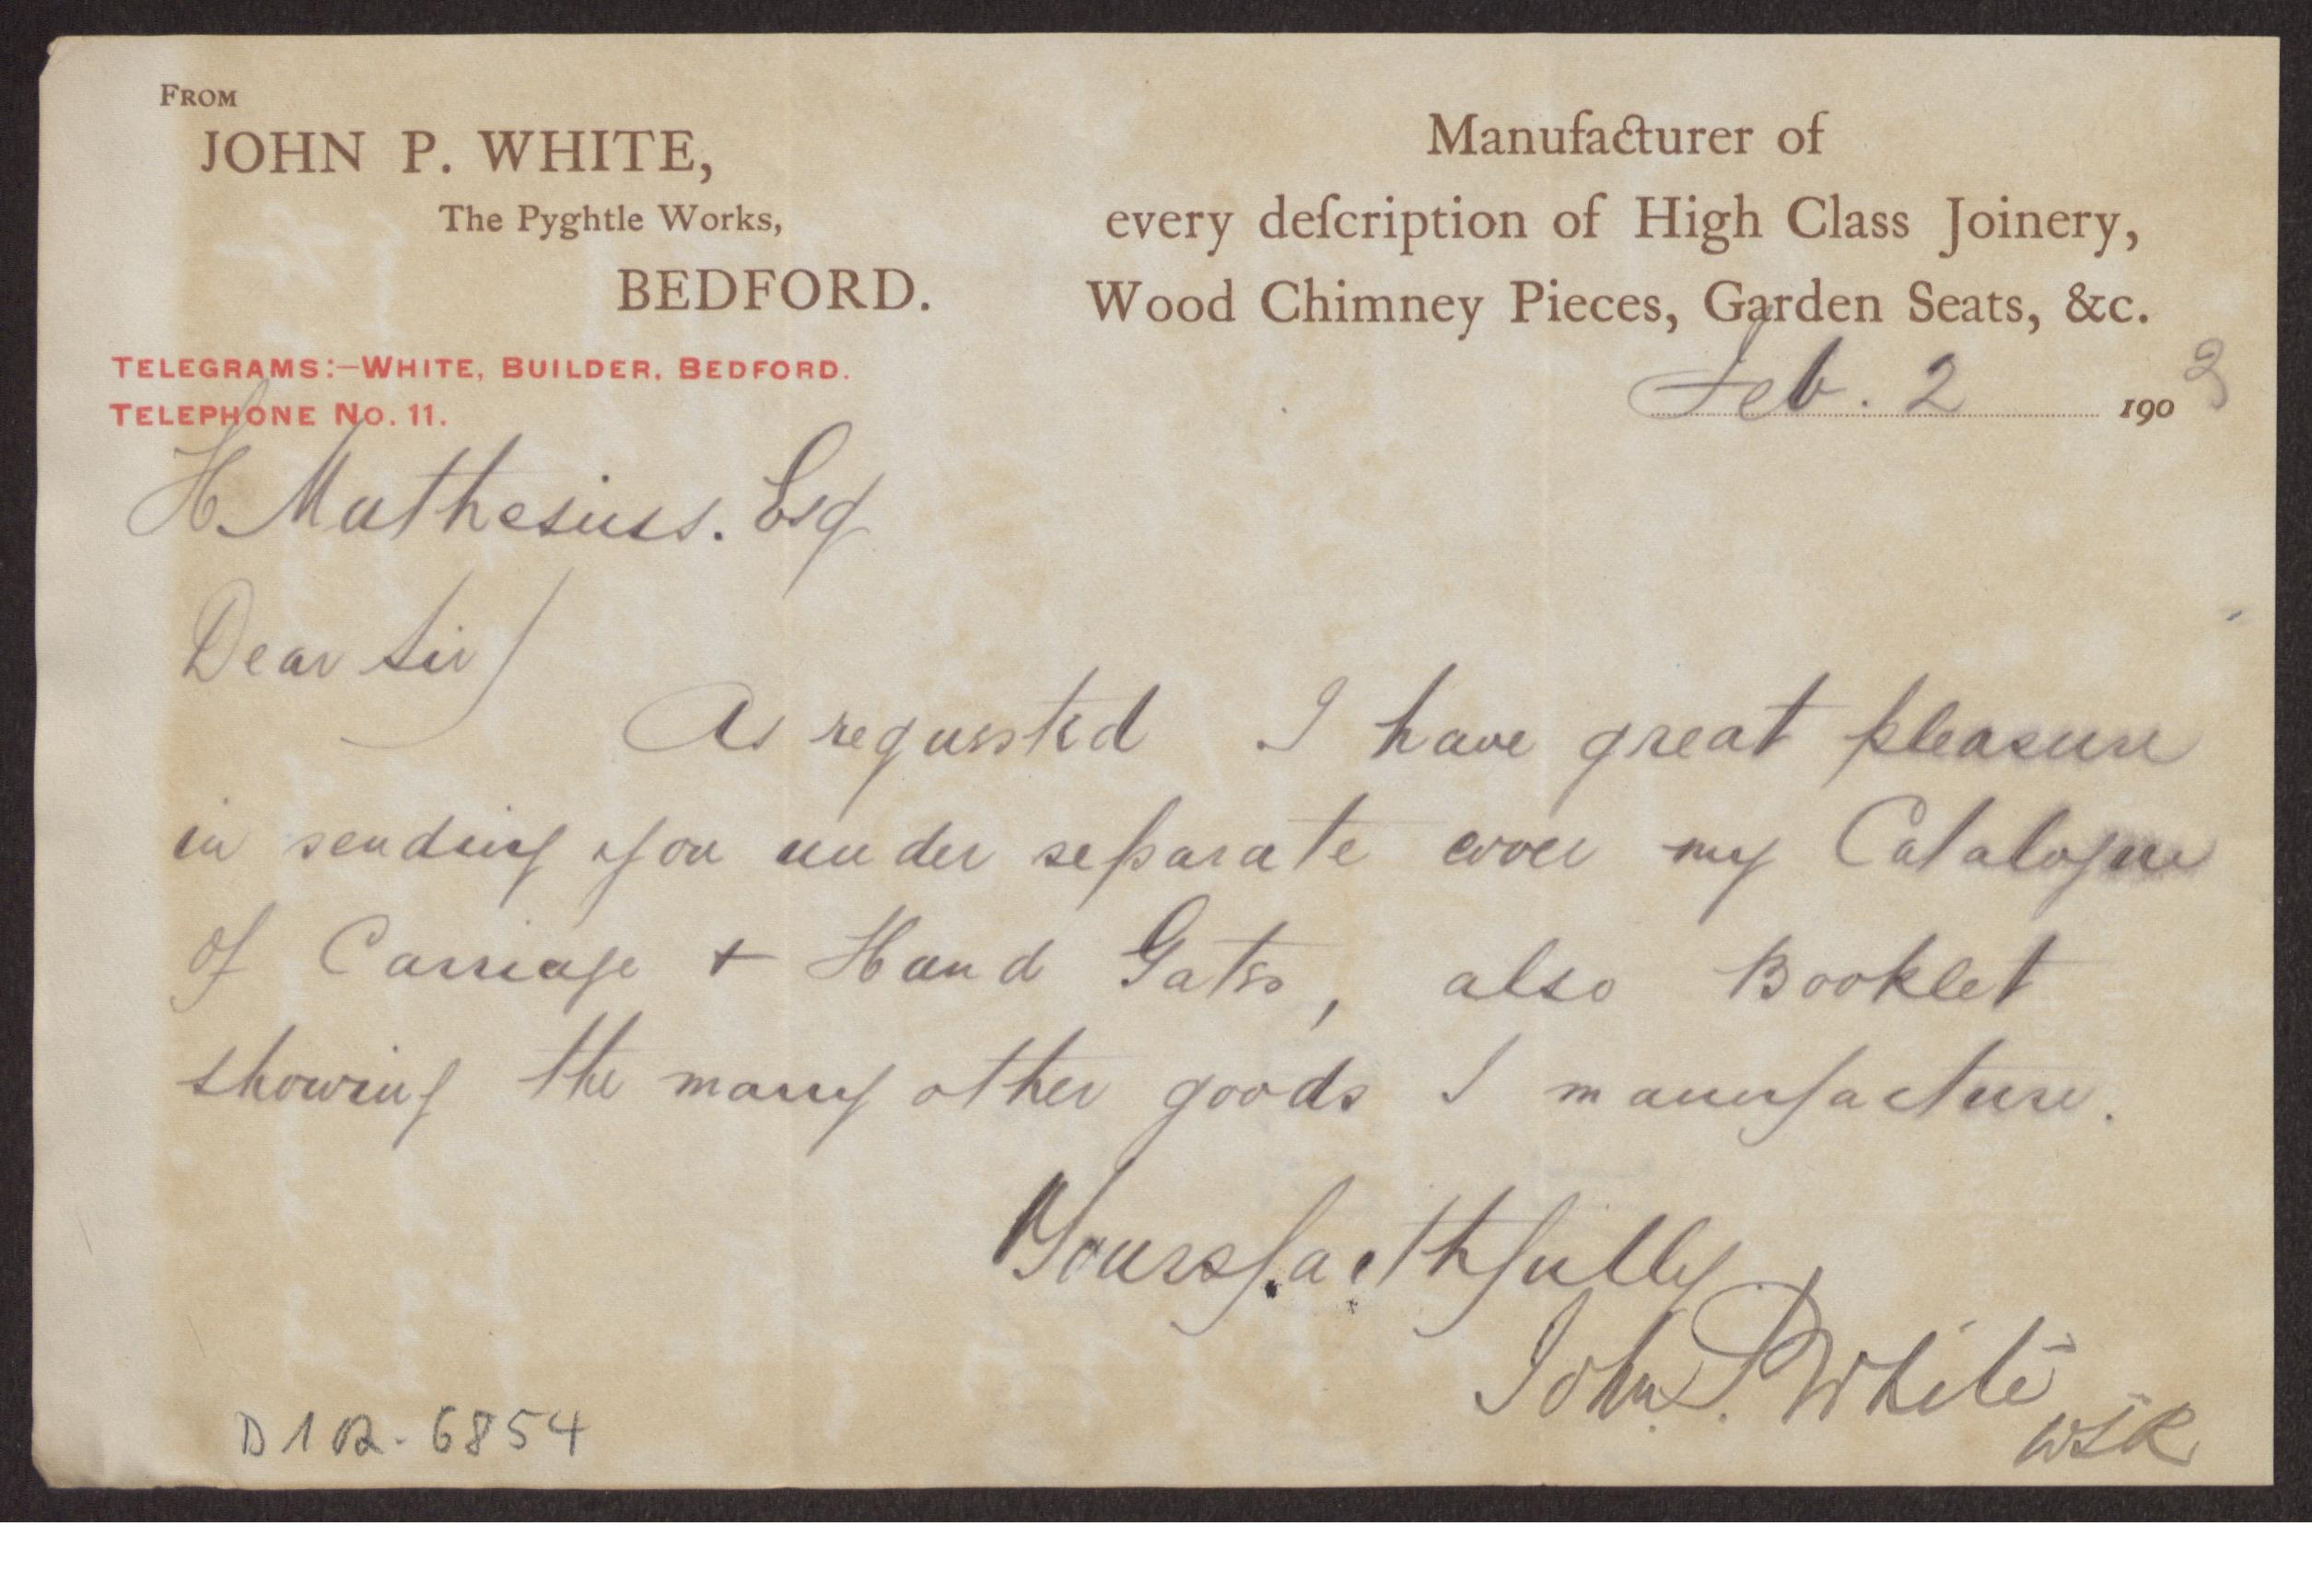 FROM
JOHN P. WHITE,
The Pyghtle Works,
BEDFORD.
TELEGRAMS:—WHITE, BUILDER, BEDFORD.
TELEPHONE NO. 11.
Manufacturer of
every deſcription of High Class Joinery,
Wood Chimney Pieces, Garden Seats, &c.
Feb. 2 1903
H Muthesius. Esq
Dear Sir/
As requested I have great pleasure
in sending you under separate cover my Catalogue
of Carriage + Hand Gates, also Booklet
showing the many other goods I manufacture.
Yours faithfully
John P. White
WSR
D 102-6854